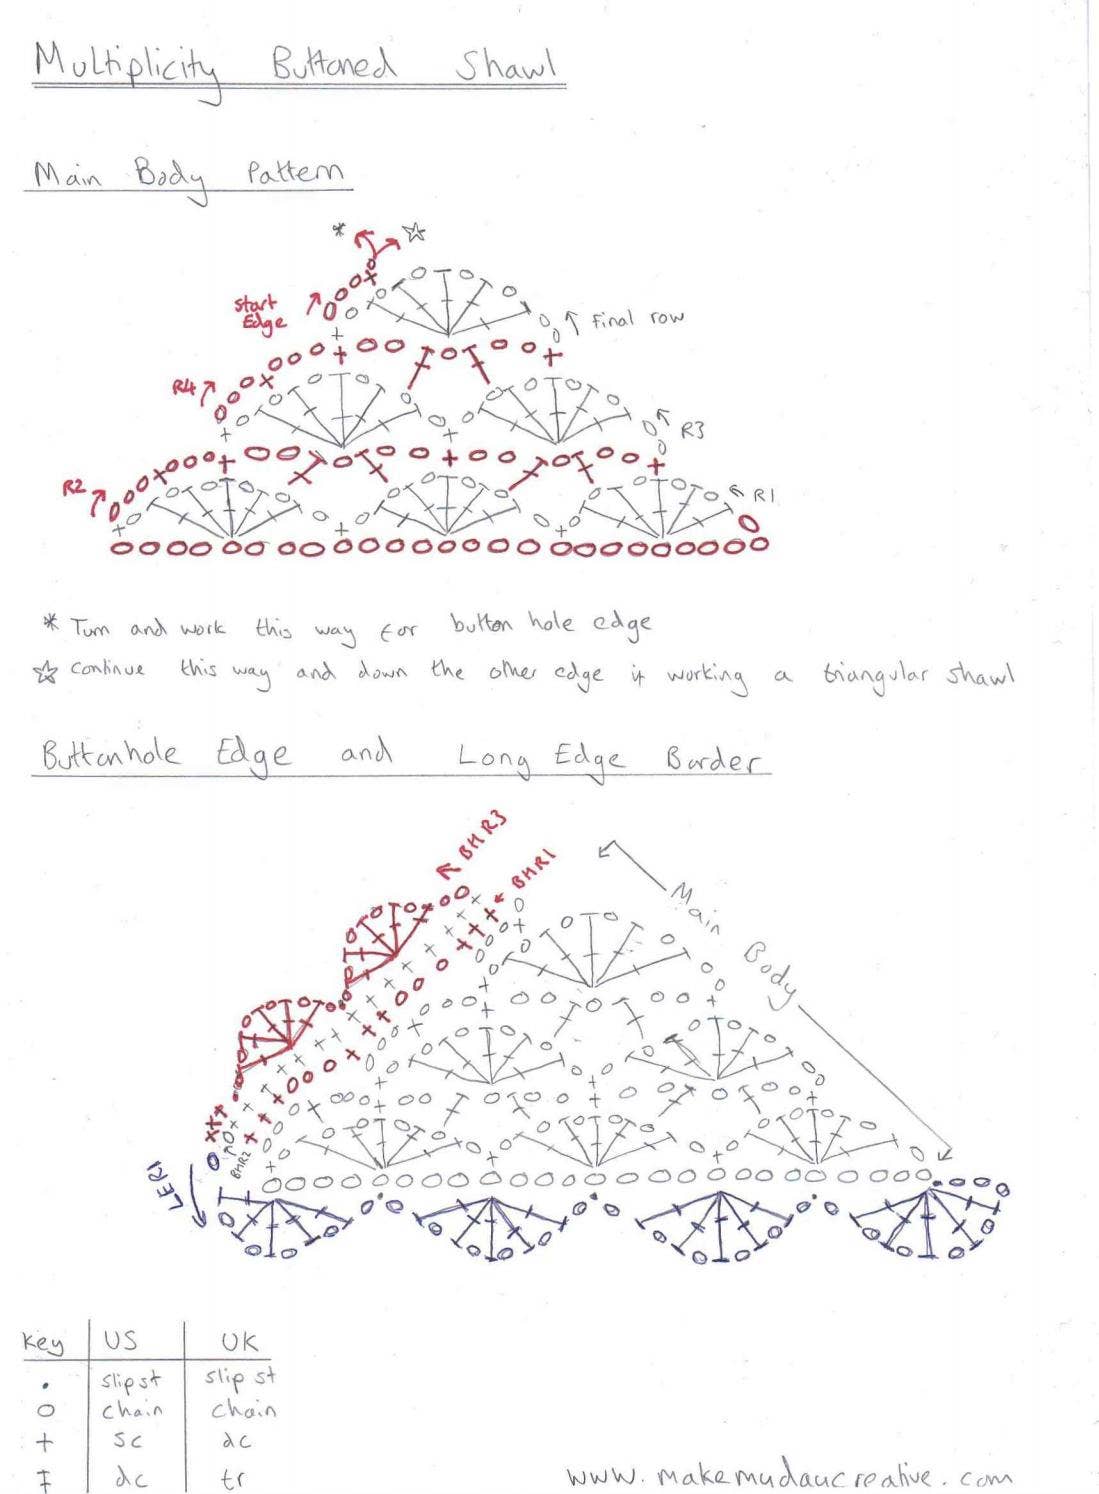 Multiplicity Buttoned Shawl
Main Body Pattern
* ☆
start
Edge
Final row
R4
R3
R2
R1
* Turn and work this way for button hole edge
☆ continue this way and down the other edge if working a triangular shawl
Buttonhole Edge and Long Edge Border
BHR3
BHR1
Main Body
BHR2
LER1
Key US UK
• slip st slip st
o chain chain
+ sc dc
ŧ dc tr
www.makemydaycreative.com